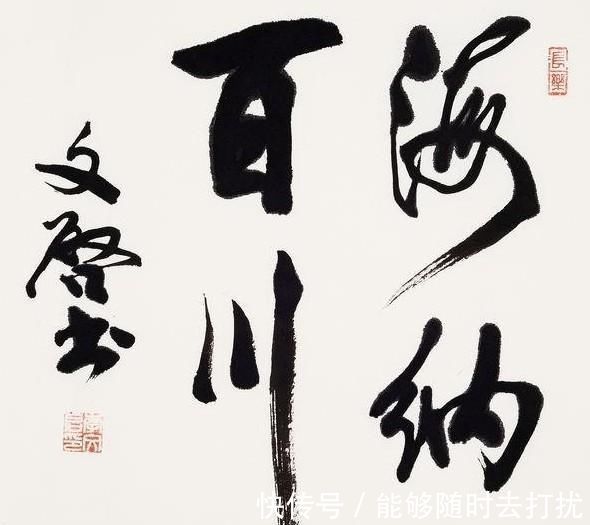 海纳
百川
文启书
长乐
快传号 / 能够随时去打扰